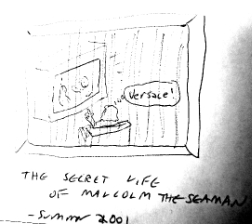 Versace!
THE SECRET LIFE
OF MALCOLM THE SEAMAN
-SUMMER 2001